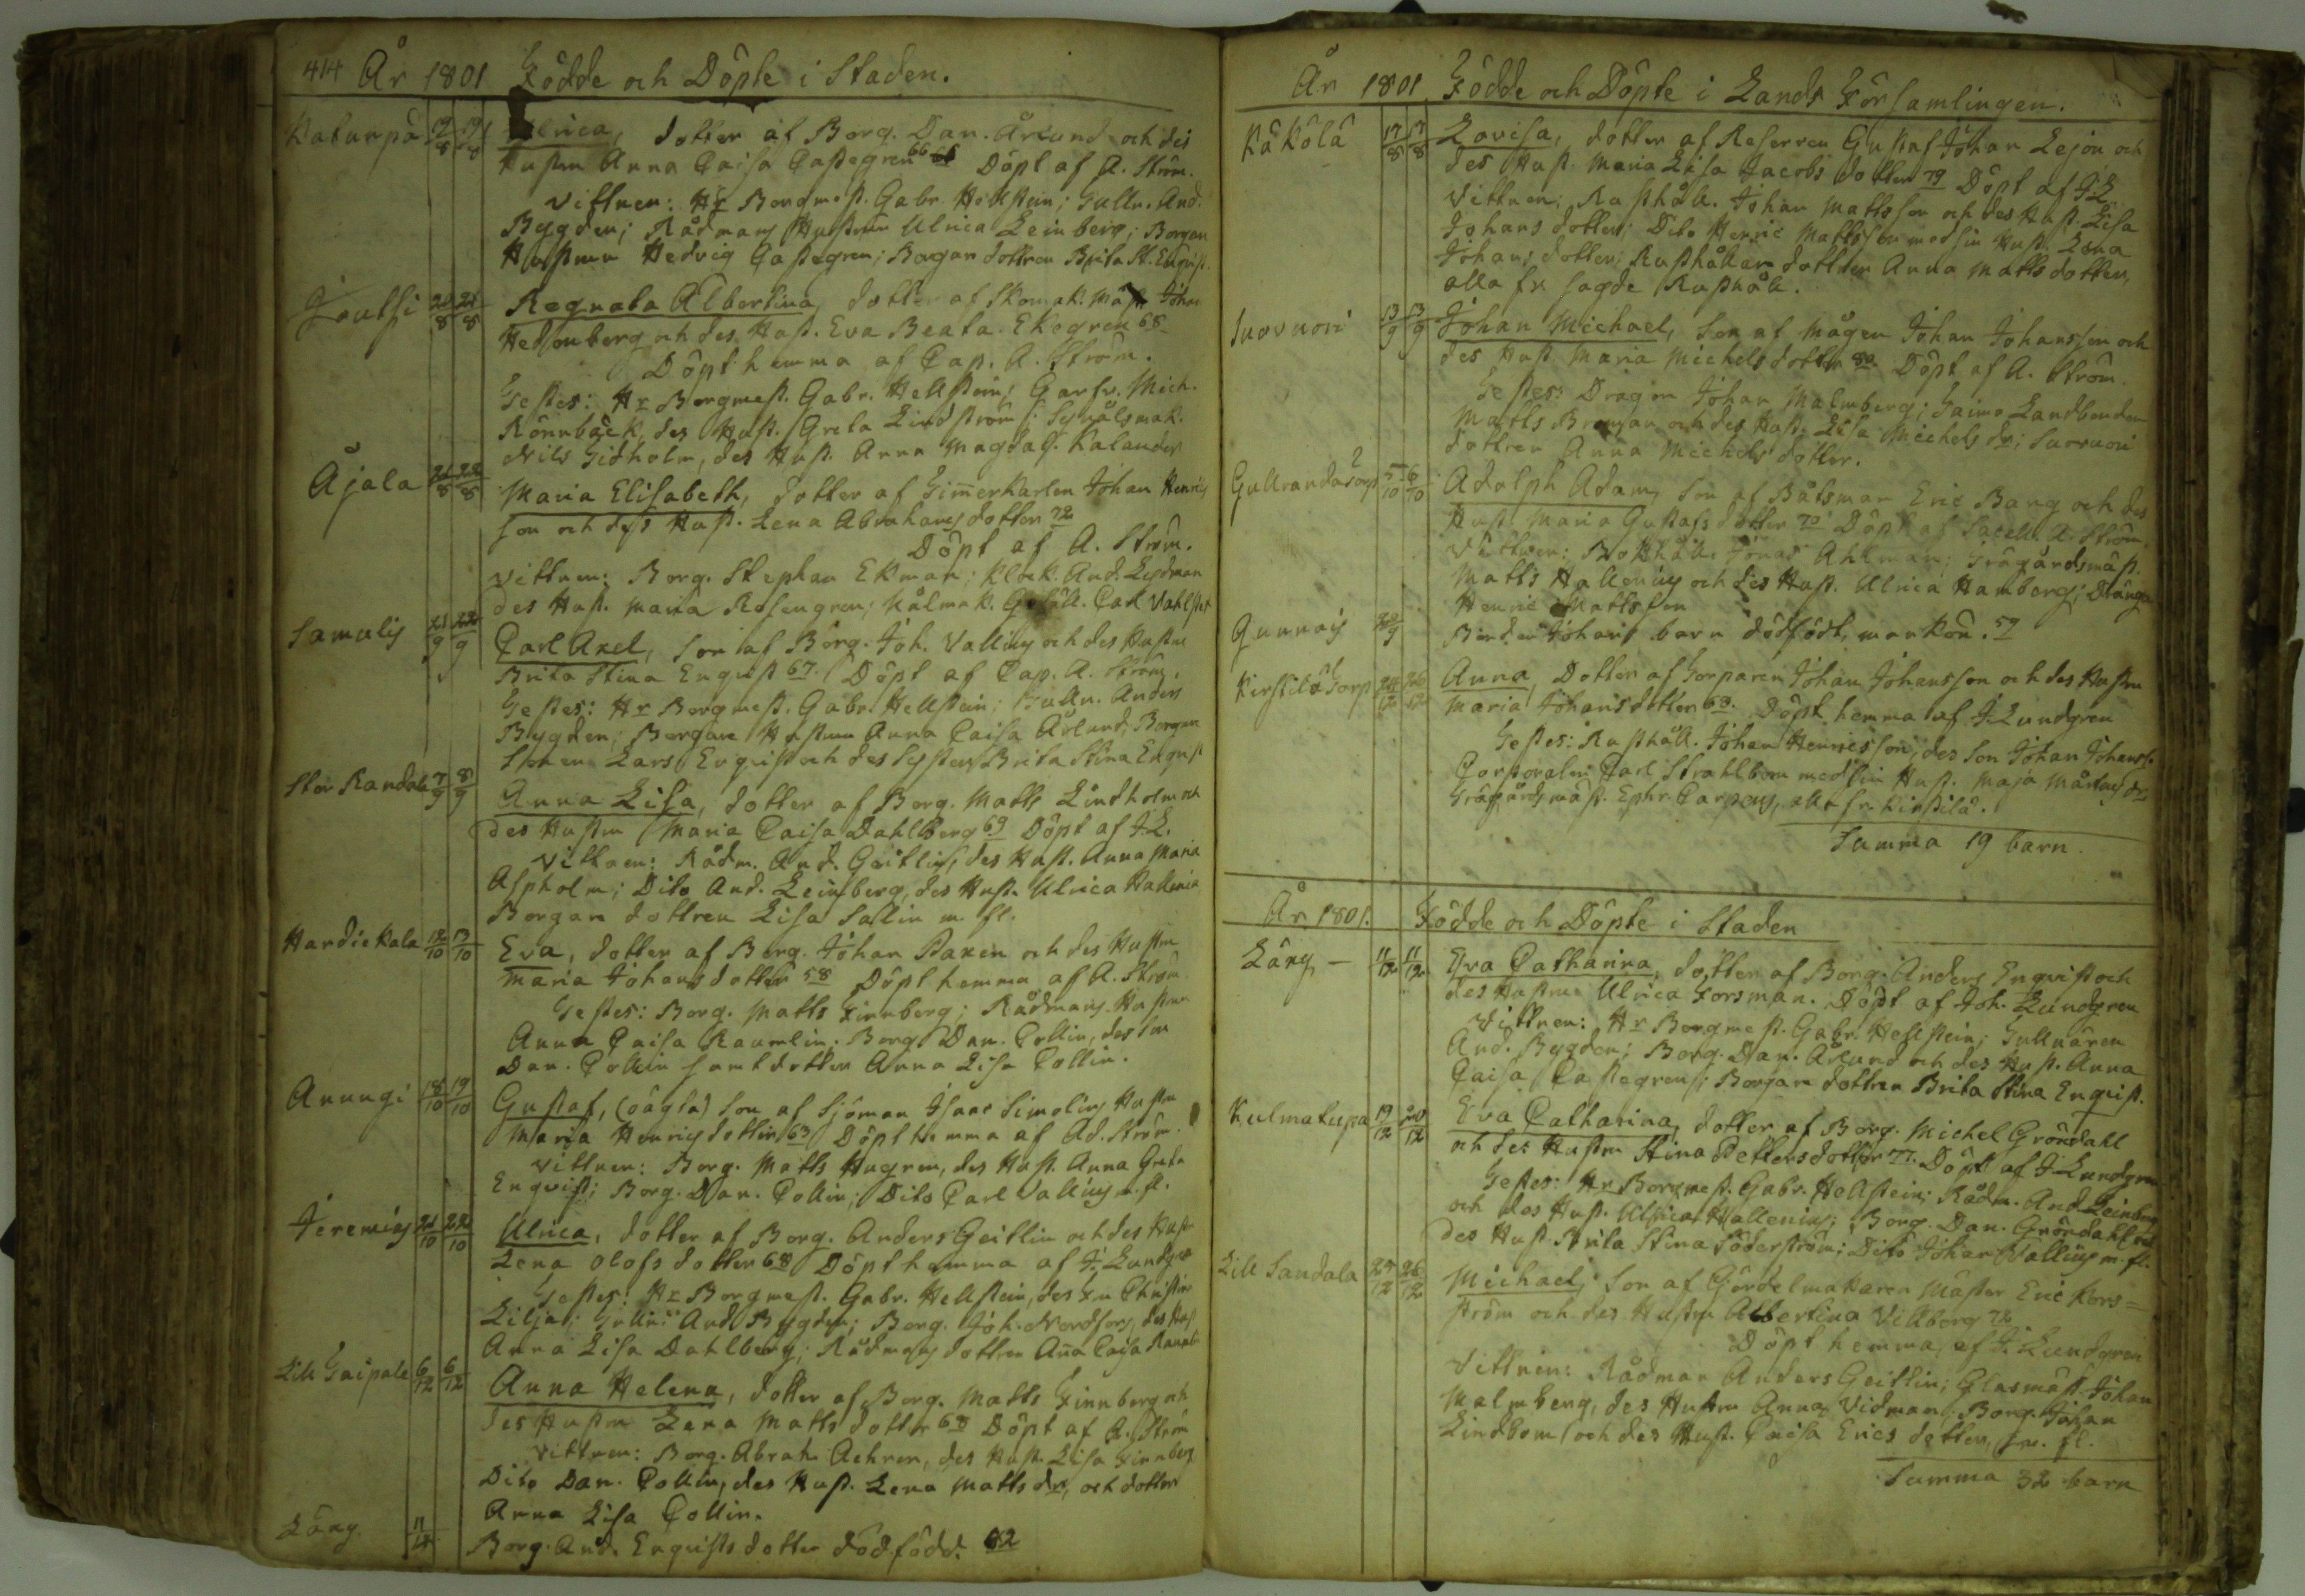 414 År 1801 Födde och Döpte i Staden.
Katanpä 19/8 19/8 Ulrica, dotter af Borg. Dan. Årlund och des
hustru Anna Caisa Castegren 66 Döpt af A. Ström.
Vittnen: Hr Borgmest. Gabr. Hellstein; Tulln. And.
Bygden; Rådmans Hustrun Ulrica Leinberg; Borgar
Hustrun Hedvig Castegren; Borgar dottren Brita St. Enqvist.
20/8 21/8 Regnata Albertina dotter af Skomak. Mäst. Johan
Hedenberg och des Hust. Eva Beata Ekegren 68
Döpt hemma af Cap. A. Ström.
Testes: Hr Borgmest. Gabr. Hellstein; Garfv. Mich.
Rönnbäck, des Hust. Greta Lindström;
Nils Gidholm, des Hust. Anna Magdal. Kalander
Äjala 21/8 22/8 Maria Elisabeth, dotter af Timmerkarlen Johan Henrics
son och dess Hust. Lena Abrahams dotter 72
Döpt af A. Ström.
Vittnen: Borg. Stephan Ekman; Klock. And. Lydman
des Hust. Maria Rosengren; Carl Vahlst
Samulis 21/9 22/9 Carl Axel, son af Borg. Joh. Vallius och des Hustru
Brita Stina Enqvist 67. Döpt af Cap. A. Ström.
Testes: Hr Borgmest. Gabr. Hellstein; Tulln. Anders
Bygden; Borgare Hustrun Anna Caisa Årlund; Borgare
Sonen Lars Enqvist och des Syster Brita Stina Enqvist
Stor Randala 7/9 8/9 Anna Lisa, dotter af Borg. Matts Lindholm och
des Hustru Maria Caisa Dahlberg 69 Döpt af J.L.
Vittnen: Rådm. And. Geitlin, des Hust. Anna Maria
Aspholm; Dito And. Leinberg, des Hust. Ulrica Hallenia
Borgare dottren Lisa Sallin m. fl.
Hardickala 12/10 13/10 Eva, dotter af Borg. Johan Paxen och des Hustru
Maria Johans dotter 58 Döpt hemma af A. Ström
Testes: Borg. Matts Finnberg; Rådmans Hustrun
Anna Caisa Raumlin; Borg. Dan. Collin, des son
Dan. Collin samt dotter Anna Lisa Collin.
Anungi 18/10 19/10 Gustaf, (oägta) son af Sjöman Isaac Simolins Hustru
Maria Henrics dotter 63 Döpt hemma af Ad. Ström.
Vittnen: Borg. Matts Hugren, des Hust. Anna Greta
Enqvist; Borg. Dan. Collin; Dito Carl Vallius m. fl.
Jeremias 21/10 22/10 Ulrica, dotter af Borg. Anders Geitlin och des Hustru
Lena Olofs dotter 68 Döpt hemma af J. Lundgren
Testes: Hr Borgmest. Gabr. Hellstein, des Fru Christina
Lilja; And. Bygden; Borg. Joh. Nordfors, des Hust.
Anna Lisa Dahlberg; Rådmans dottren Anna Caisa Rauml
Lill Taipale 6/12 6/12 Anna Helena, dotter af Borg. Matts Finnberg och
des Hustru Lena Matts dotter 68 Döpt af A. Ström
Vittnen: Borg. Abrah. Achren, des Hust. Lisa Finnberg
Dito Dan. Collin, des Hust. Lena Matts dr, och dotter
Anna Lisa Collin.
Läng. 11/12 Borg. And. Enqvists dotter dödfödd. 62
År 1801 Födde och Döpte i Lands Församlingen.
Käkölä 17/8 17/8 Lovisa, dotter af Reserven Gustaf Johan Lejon och
des Hust. Maria Lisa Jacobs dotter 79 Döpt af J.L.
Vittnen: Rusthåll. Johan Mattsson och des Hust. Lisa
Johans dotter; Dito Henric Mattsson med sin Hust. Lena
Johans dotter; Rusthållar dottren Anna Matts dotter,
alla fr. sagde Rusthåll.
Suovuori 13/9 13/9 Johan Michael, son af Mågen Johan Johansson och
des Hust. Maria Michels dotter 80. Döpt af A. Ström.
Testes: Dragon Johan Malmberg; Landbonden
Matts och des Hust. Lisa Michels dr; Suovuori
dottren Anna Michels dotter.
5/10 6/10 Adolph Adam, son af Båtsman Eric Bang och des
Hust. Maria Gustafs dotter 70 Döpt af Sacell. A. Ström
Vittnen: Bokhåll. Jonas Ahlman; Trägårdsmäst.
Matts Hallenius och des Hust. Ulrica Hamberg; Dränge
Henric Mattsson
Gunnais 20/9 Bond. Johans barn dödfödt, mankön. 59
Kirstilä Torp 24/12 26/12 Anna, Dotter af Torparen Johan Johansson och des Hustru
Maria Johans dotter 63. Döpt hemma af J. Lundgren
Testes: Rusthåll. Johan Henricsson, des son Johan Johanss.
Corporalen Carl Strahlbom med sin Hust. Maja Mårtens dr
Trägårdsmäst. Ephr. Carpens, alla fr. Kirstilä.
Summa 19 barn.
År 1801. Födde och Döpte i Staden
Läng 11/12 11/12 Eva Catharina, dotter af Borg. Anders Enqvist och
des Hustru Ulrica Forsman. Döpt af Joh. Lundgren
Vittnen: Hr Borgmest. Gabr. Hellstein; Tullnären
And. Bygden; Borg. Dan. Årlund och des Hust. Anna
Caisa Castegren; Borgare dottren Brita Stina Enqvist.
Kulmakupa 19/12 20/12 Eva Catharina, dotter af Borg. Michel Gröndahl
och des Hustru Stina Petters dotter 77. Döpt af J. Lundgren
Testes: Hr Borgmest. Gabr. Hellstein; Rådm. And. Leinberg
och des Hust. Ulrica Hallenius; Borg. Dan. Gröndahl och
des Hust. Brita Stina Söderström; Dito Johan Vallius m. fl.
Lill Sandala 25/12 26/12 Michael, son af Gördelmakaren Mäster Eric Fors=
ström och des Hustru Albertina Villborg 72
Döpt hemma af J. Lundgren
Vittnen: Rådman Anders Geitlin; Glasmäst. Johan
Malmberg, des Hustru Anna Vidman; Borg. Johan
Lindbom och des Hust. Caisa Erics dotter, m. fl.
Summa 32 barn